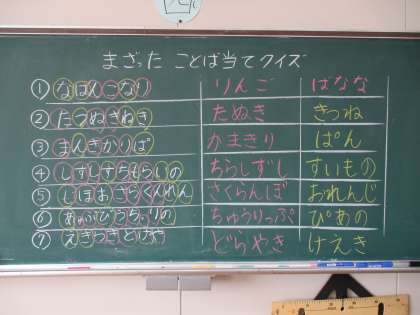 まざった ことば当てクイズ
① なばんごなり りんご ばなな
② たつぬきねき たぬき きつね
③ まんきかりぱ かまきり ぱん
④ しずしすちもらいの ちらしずし すいもの
⑤ じぼおさらくんれん さくらんぼ おれんじ
⑥ あゅぷぴうちっりの ちゅうりっぷ ぴあの
⑦ えきらきどけや どらやき けえき